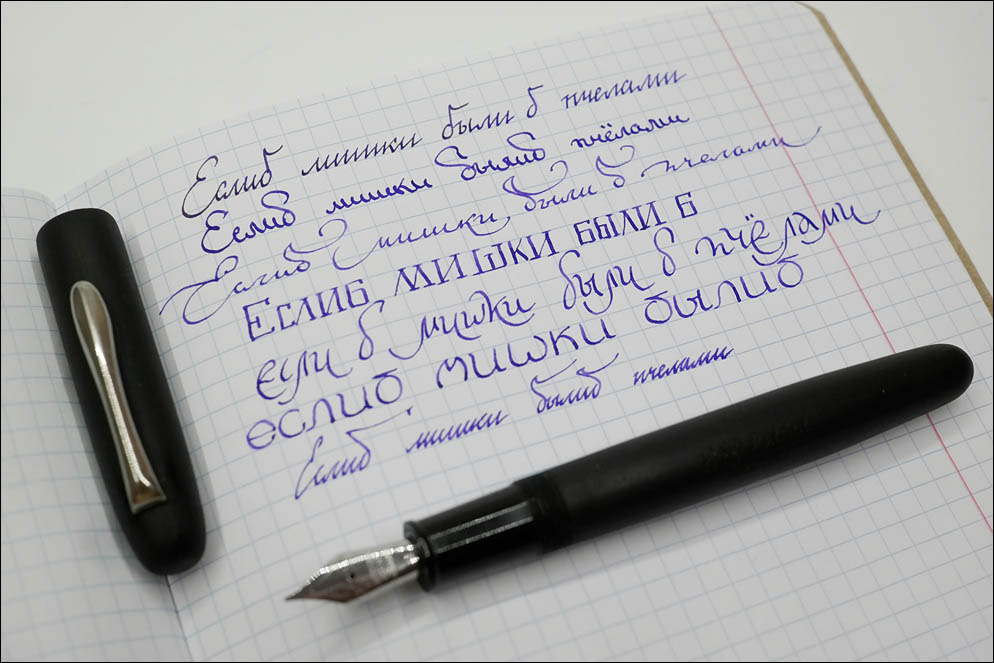 Еслиб мишки были б пчелами
Еслиб мишки былиб пчёлами
Еслиб мишки были б пчелами
Еслиб мишки были б
если б мишки были б пчёлами
еслиб мишки былиб
Еслиб мишки былиб пчелами